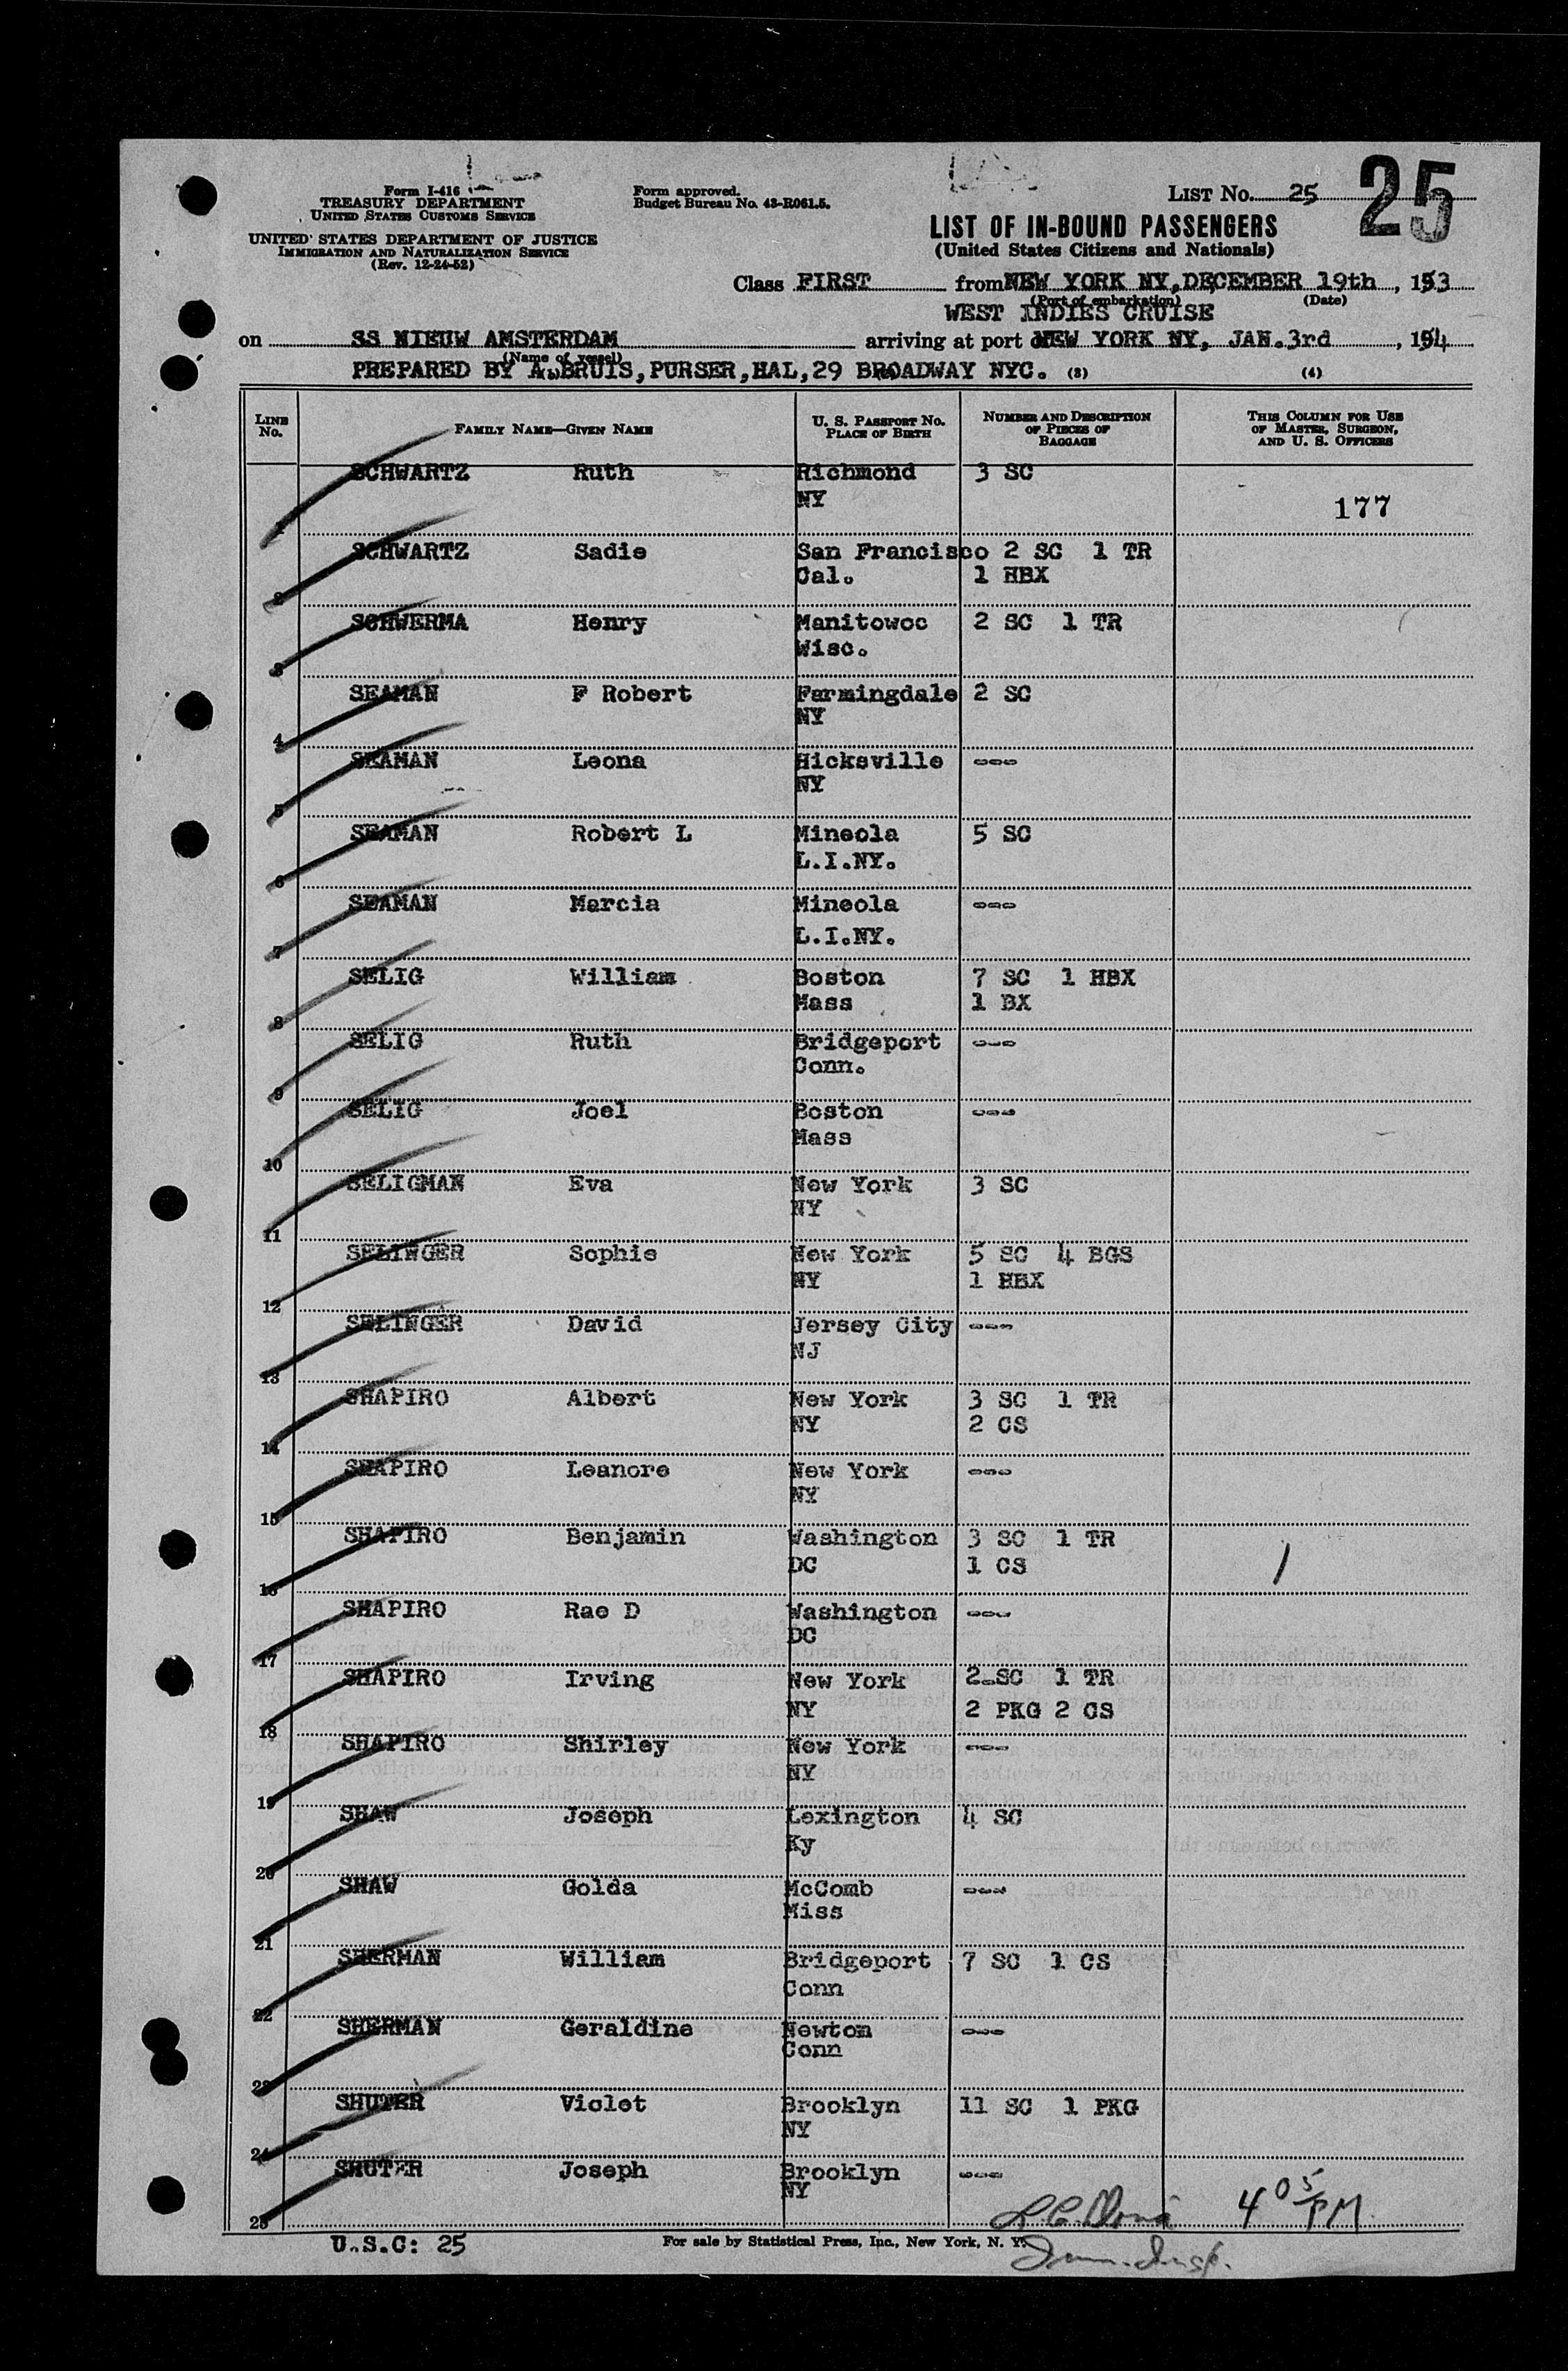 Form I-416
TREASURY DEPARTMENT
UNITED STATES CUSTOMS SERVICE
UNITED STATES DEPARTMENT OF JUSTICE
IMMIGRATION AND NATURALIZATION SERVICE
(Rev. 12-24-52)
Form approved.
Budget Bureau No. 43-R061.5.
LIST No. 25 25
LIST OF IN-BOUND PASSENGERS
(United States Citizens and Nationals)
Class FIRST from NEW YORK NY, DECEMBER 19th, 1953
(Port of embarkation) (Date)
WEST INDIES CRUISE
on SS NIEUW AMSTERDAM arriving at port of NEW YORK NY, JAN.3rd, 1954
(Name of vessel)
PREPARED BY A. BRUIS, PURSER, HAL, 29 BROADWAY NYC. (3) (4)
LINE No. FAMILY NAME—GIVEN NAME U. S. PASSPORT No. PLACE OF BIRTH NUMBER AND DESCRIPTION OF PIECES OF BAGGAGE THIS COLUMN FOR USE OF MASTER, SURGEON, AND U. S. OFFICERS
SCHWARTZ Ruth Richmond 3 SC
1 NY 177
SCHWARTZ Sadie San Francisco 2 SC 1 TR
2 Cal. 1 HBX
SCHWERMA Henry Manitowoc 2 SC 1 TR
3 Wisc.
SEAMAN F Robert Farmingdale 2 SC
4 NY
SEAMAN Leona Hicksville ---
5 NY
SEAMAN Robert L Mineola 5 SC
6 L.I.NY.
SEAMAN Marcia Mineola ---
7 L.I.NY.
SELIG William Boston 7 SC 1 HBX
8 Mass 1 BX
SELIG Ruth Bridgeport ---
9 Conn.
SELIG Joel Boston ---
10 Mass
SELIGMAN Eva New York 3 SC
11 NY
SELINGER Sophie New York 5 SC 4 BGS
12 NY 1 HBX
SELINGER David Jersey City ---
13 NJ
SHAPIRO Albert New York 3 SC 1 TR
14 NY 2 CS
SHAPIRO Leanore New York ---
15 NY
SHAPIRO Benjamin Washington 3 SC 1 TR
16 DC 1 CS /
SHAPIRO Rae D Washington ---
17 DC
SHAPIRO Irving New York 2 SC 1 TR
18 NY 2 PKG 2 CS
SHAPIRO Shirley New York ---
19 NY
SHAW Joseph Lexington 4 SC
20 Ky
SHAW Golda McComb ---
21 Miss
SHERMAN William Bridgeport 7 SC 1 CS
22 Conn
SHERMAN Geraldine Newton ---
23 Conn
SHUTER Violet Brooklyn 11 SC 1 PKG
24 NY
SHUTER Joseph Brooklyn ---
25 NY 4 05 PM
U.S.C: 25 For sale by Statistical Press, Inc., New York, N. Y.
Imm. Insp.